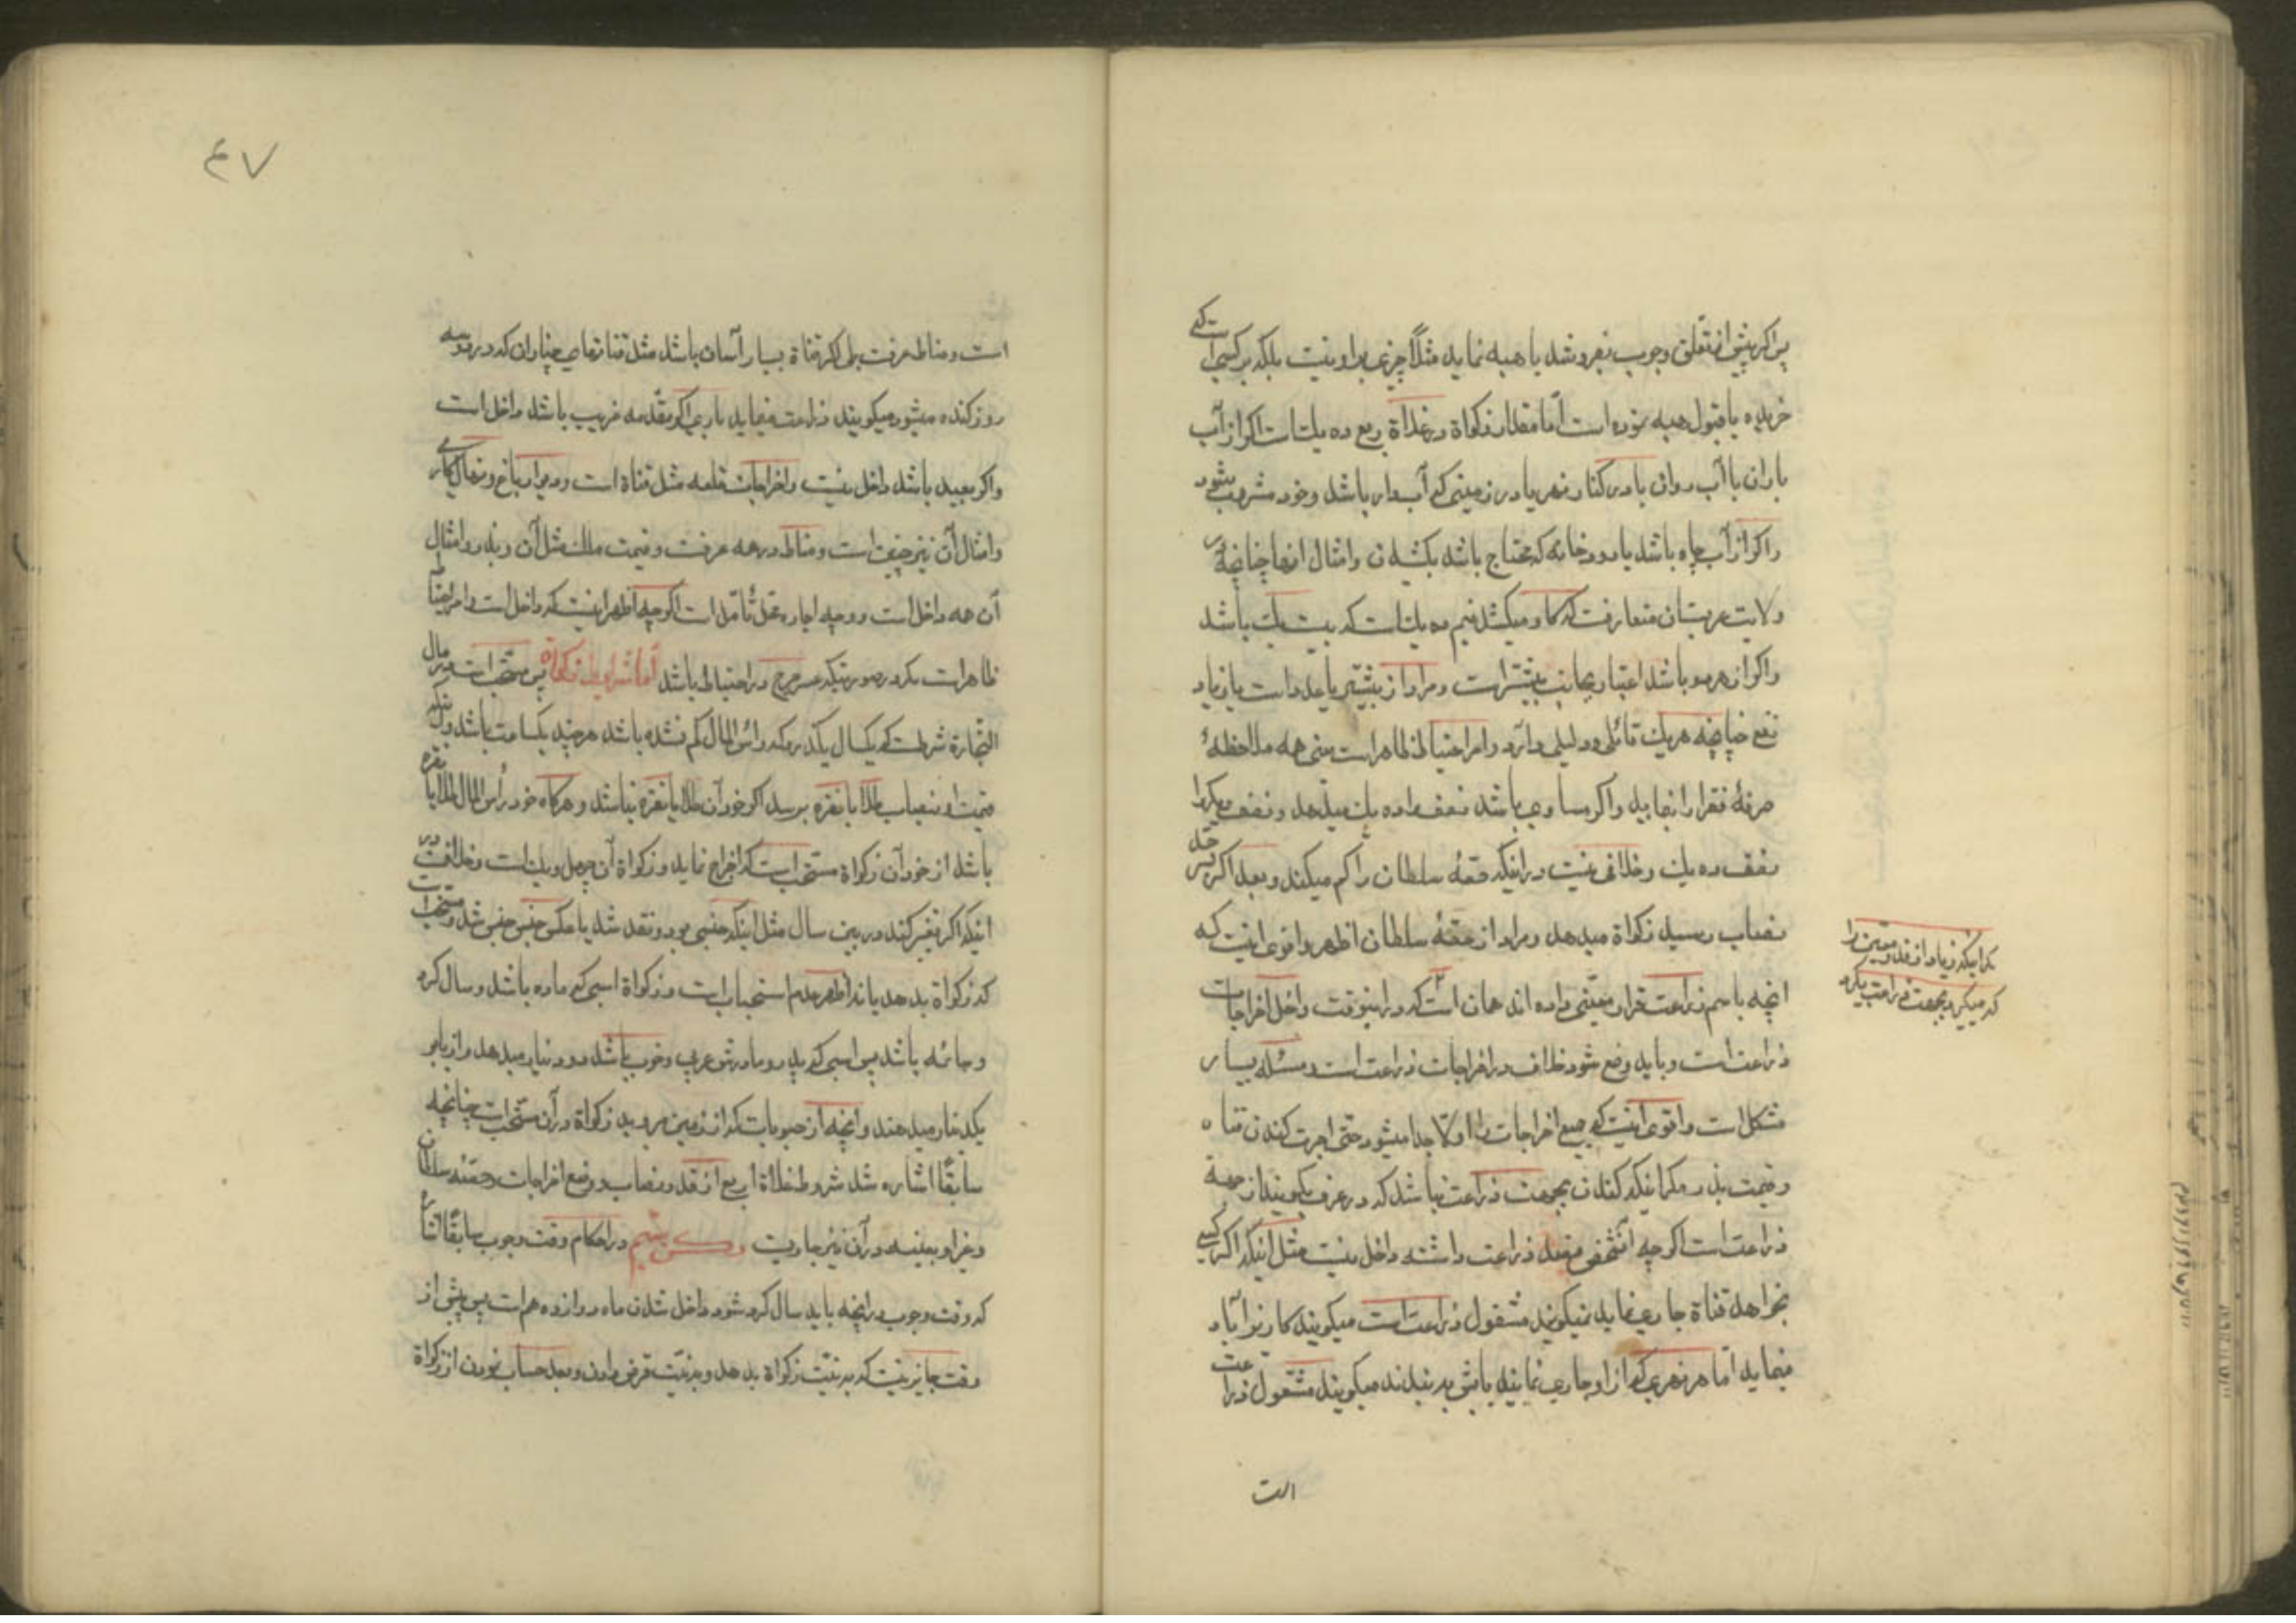 پس اگر پیش از تعلق وجوب بفروشد یا هبه نماید مثلاً چیزی بر او نیست بلکه بر کسی است که
خریده یا قبول هبه نموده است امّا مقدار زکواة در غلاة ربع ده یك است اگر از آب
باران یا آب روان یا در کنار نهر یا در زمینی که آب دار باشد و خود مشروب شود
و اکر از آب چاه باشد یا رودخانه که محتاج باشد بکشیدن و امثال انها چنانچه در
ولایت عربستان متعارفست که کاو میکشد نیم ده یك است که بیست یك باشد
و اکر از هر دو باشد اعتبار بجانب بیشتر است و مراد از بیشتر یا عدد است یا زیاد
نفع چنانچه هر یك قائلی و دلیلی دارد و امر احتیاط ظاهر است یعنی همه ملاحظهٔ
صرفهٔ فقرا را نمایید و اکر مساوی باشد نصف را ده یك میدهد و نصف دیکر را
نصف ده یك و خلافی نیست در اینکه حصّهٔ سلطان را کم میکند و بعد اکر بحدّ
نصاب رسید زکواة میدهد و مراد از حصّهٔ سلطان اظهر و اقوی اینست که
انچه باسم زراعت قرار معیّنی داده اند همان است که در اینوقت داخل اخراجات
زراعت است و باید وضع شود خلاف در اخراجات زراعت است و مسئله بسیار
مشکل است و اقوی اینست که جمیع اخراجات را اولا جدا میشود حتی اجرت کندن قناه
و قیمت بذر مکر اینکه کندن بجهت زراعت نباشد که در عرف بکویند از جهة
زراعت است اکرچه انشخص مقصد زراعت داشته داخل نیست مثل اینکه اکر کسی
بخواهد قناة جاری نماید نمیکویند مشغول زراعت است میکویند کاریز آباد
مینماید امّا هر نهری که از او جاری نمایند یا شق بدهند میکویند مشغول زراعت
است
مکر اینکه زیاد از قدر معین را
که میکیرد بجهت زراعت بکیرد
٤٧
است و مناط عرفست بلی اکر قناة بسیار آسان باشد مثل قناتهای چناران که در دو سه
روز کنده میشود میکویند زراعت مینماید باری اکر مقدمه قریب باشد داخل است
و اکر بعید باشد داخل نیست و اخراجات قلعه مثل قناة است و دیوار باغ و نهال کاری
و امثال آن نیز چنین است و مناط در همه عرفست و قیمت ملك مثل آن و بذر و امثال
آن همه داخل است و وجه اجاره محل تأمل است اکرچه اظهر اینست که داخل است و امر احتیاط
ظاهر است مکر در صورتیکه عسر حرج در احتیاط باشد امّا شرایط زکواة پس مستحب است در مال
التجارة شرطست که یکسال یکذرد که در رأس المال کم نشده باشد هرچند یکساعت باشد و اینکه
قیمت او بنصاب طلا یا نقره برسد اکر خود آن طلا یا نقره نباشد و هرکاه خود رأس المال طلا یا نقره
باشد از خود آن زکواة مستحب است که اخراج نماید و زکواة آن چهل و یك است و خلافست در
اینکه اکر تغییر کند در بین سال مثل اینکه جنسی بود و نقد شد یا عکس جنس جنس شد مستحب است
که زکواة بدهد یا نه اظهر عدم استحباب است و زکواة اسبی که ماده باشد و سال کرد
و سائمه باشد پس اسبی که پدر و مادرش عربی و خوب باشد دو دینار میدهد و از یابو
یکدینار میدهند و انچه از حبوبات که از زمین میروید زکواة در آن مستحب است چنانچه
سابقا اشاره شد شروط غلاة اربع از قدر نصاب و وضع اخراجات و حصّه سلطان
و غیر او بعینه در آن نیز جاریست در احکام وقت وجوب سابقا اشاره
که وقت وجوب در انچه باید سال کرد شود داخل شدن ماه دوازدهم است پس پیش از
وقت جایز نیست که بنیّت زکواة بدهد و بنیّت قرض دادن و بعد حساب نمودن از زکواة